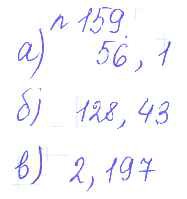 п 159.
а) 56, 1
б) 128, 43
в) 2, 197